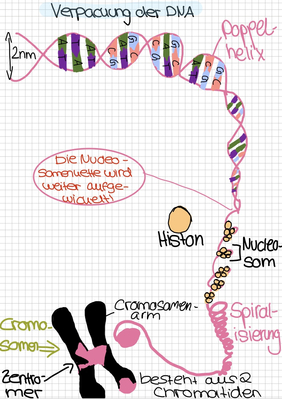 Verpackung der DNA
Doppel-
helix
2nm
Die Nucleo-
somenkette wird
weiter aufge-
wickelt!
Histon
Nucleo-
som
Spiral-
isierung
Cromosomen-
arm
Cromo-
somen
Zentro-
mer
besteht aus 2
Chromatiden